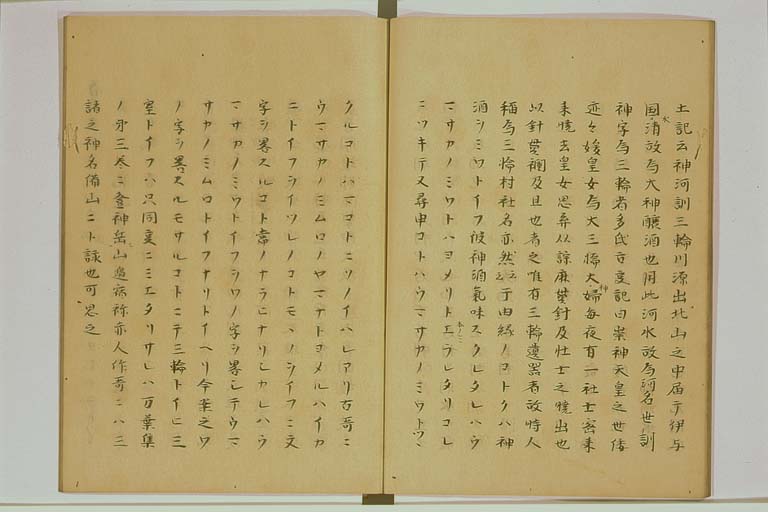 土記云神河訓三輪川源出北山之中届于伊与
国水清故為大神釀酒也用此河水故為河名世訓
神字為三輪者多氏古事記曰崇神天皇之世倭
迹々媛皇女為大三輪大神婦毎夜有一壮士密来
暁去皇女思奔以綜麻貫針及壮士之暁出也
以針貫襴及旦也者之唯有三輪遺器者故時人
稱為三輪村社名亦然云云于由縁ノコトク八神
酒シミワトイフ彼神酒氣味スクレタレハウ
マサカノミワトハヨメリトエラレタリコレ
ニツキテ又尋申コトハウマサカノミワトツヽ
クルコトハマコトニソノイハレアリ古哥ニ
ウマサカノミムロノヤマナトヨメルハイカ
ニトイフライツレノコトモヽノシイフニ文
字シ畧スルコト常ノナラヒナリシカレハウ
マサカノミワトイフシワノ字シ畧シテウマ
サカノミムロトイフナリトイヘリ今案之ワ
ノ字シ畧スルモサルコトニテ三輪トイヒ三
室トイフハ只同夏ニミエタリサレハ万葉集
ノ第三巻ニ登神岳山邊宿祢赤人作哥ニハ三
諸之神名備山ニト詠也可思之